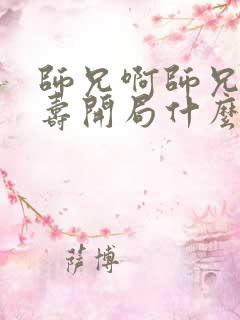 師兄啊師兄
壽開局什麼
萨博